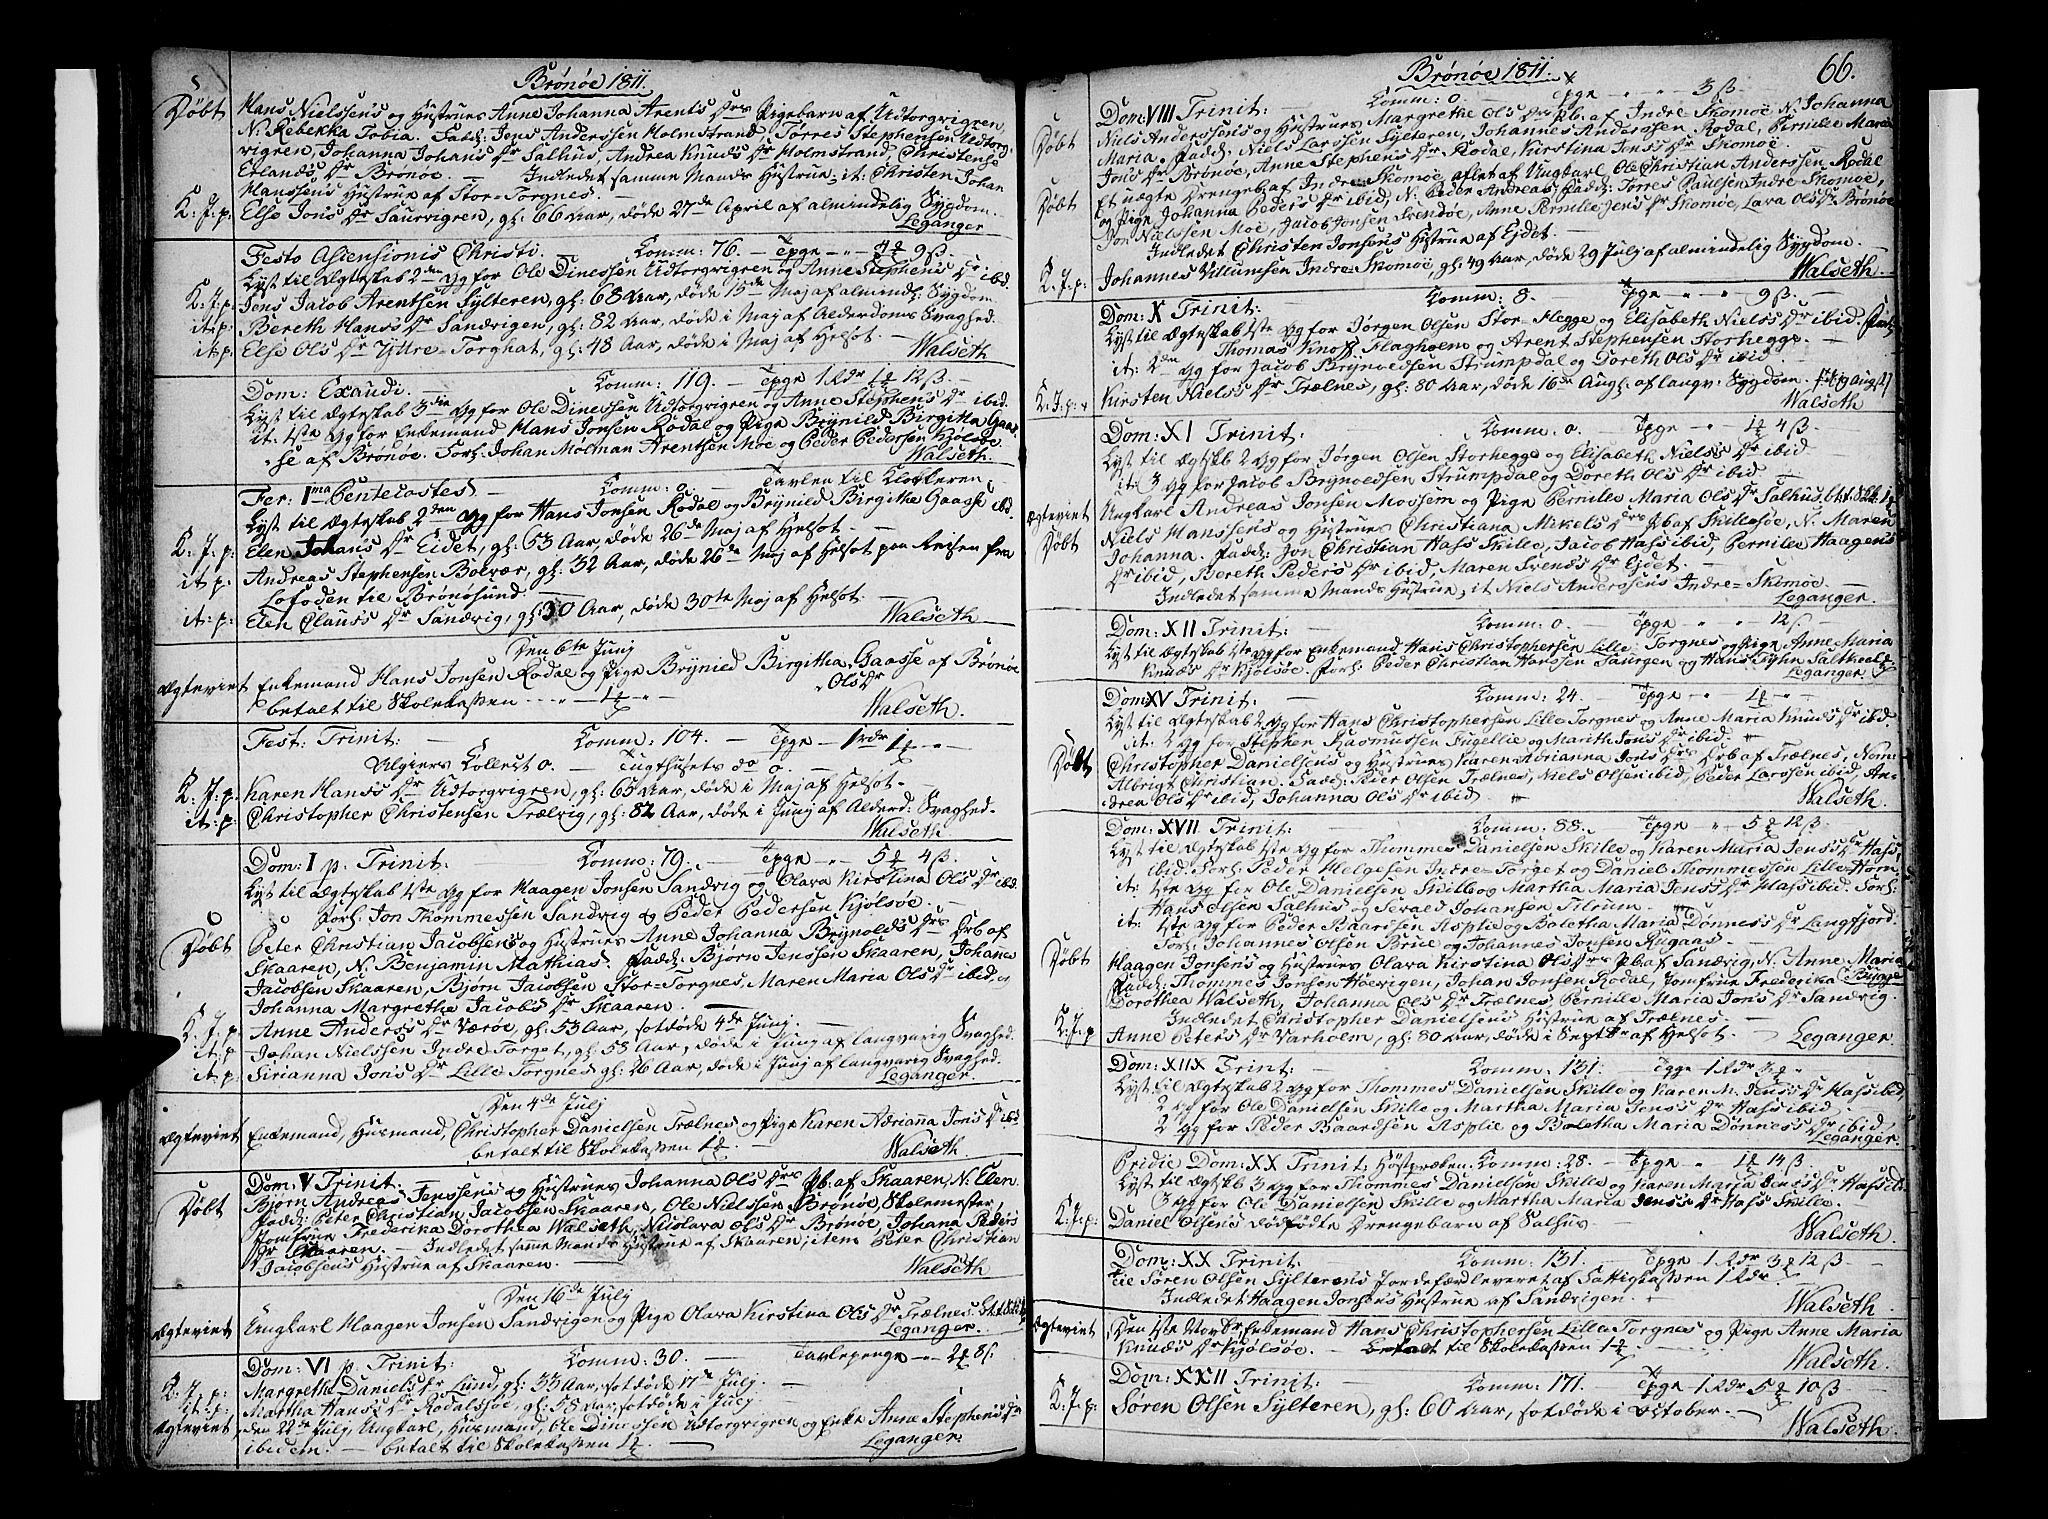 Brønøe 1811.
Døbt Hans Nielssens og Hustrues Anne Johanna Arents Drs Pigebarn af Udtorgvigren,
N. Rebekka Tobia. Fadd: Jens Anderssen Holmstrand, Tørres Stephensen Udtorg-
vigren, Johanna Johans Dr Salhus, Andrea Knuds Dr Holmstrand, Christense
Erlands Dr Brønøe. — Indledet samme Mands Hustrue, it: Christen Johan
Hanssens Hustrue af Stor-Torgnes. —
K: J: p: Else Jons Dr Saurvigren, gl: 66 Aar, døde 27de April af almindelig Sygdom.
Leganger
Festo Ascensionis Christi. Comm: 76. — Tpge - „ - 4 9 ß.
Lyst til Ægteskab 2den Gg for Ole Dinessen Udtorgvigren og Anne Stephens Dr ibid.
K: J: p: Jens Jacob Arentsen Sylteren, gl: 68 Aar, døde 15de Maj af almindl: Sygdom.
it: p: Bereth Hans's Dr Sandvigen, gl: 82 Aar, døde i Maj af Alderdoms Svaghed.
it: p: Else Ols Dr Yttre-Torghat, gl: 48 Aar, døde i Maj af Helsot. —
Walseth
Dom: Exaudi. — Comm: 119. — Tpge 1 Rdr 1 12 ß.
Lyst til Ægteskab 3die Gg for Ole Dinessen Udtorgvigren og Anne Stephens Dr ibid.
it: 1ste Gg for Enkemand Hans Jonsen Rodal og Pige Brynild Birgitha Gaas-
se af Brønøe. Forl: Johan Mølman Arentsen Moe og Peder Pedersen Kjølsøe.
Walseth.
Fer: 1ma Pentecostes — Comm: 0. — Tavlen til Klokkeren
Lyst til Ægteskab 2den Gg for Hans Jonsen Rodal og Brynild Birgitha Gaasse ibid.
K: J: p: Elen Johans Dr Eidet, gl: 63 Aar, døde 26de Maj af Helsot. —
it: p: Andreas Stephensen Bolvær, gl: 32 Aar, døde 26de Maj af Helsot paa Reisen fra
Lofoden til Brønøsund. —
it: p: Elen Clauss Dr Sandvig, gl: 30 Aar, døde 30te Maj af Helsot. —
Walseth
Den 6te Junj
Ægteviet Enkemand Hans Jonsen Rodal og Pige Brynild Birgitha Ols Dr Gaasse af Brønøe
betalt til Skolekassen - - - „ - 1 - „ -
Walseth.
Fest: Trinit: — Comm: 104. — Tpge — 1 Rdr 1 - „ -
Algiers Collect 0. — Tugthusets do 0. —
K: J: p: Karen Hans's Dr Udtorgvigren, gl: 65 Aar, døde i Maj af Helsot. —
it: p: Christopher Christensen Trælvig, gl: 82 Aar, døde i Junj af Alderd: Svaghed. —
Walseth
Dom: I p. Trinit: — Comm: 79. — Tpge - „ 5 4 ß.
Lyst til Ægteskab 1ste Gg for Haagen Jonsen Sandvig og Olava Kirstina Ols Dr ibid.
Forl: Jon Thommessen Sandvig og Peder Pedersen Kjølsøe. —
Døbt Peter Christian Jacobsens og Hustrues Anne Johanna Brynolds Drs Drb af
Skaaren, N. Benjamin Mathias. Fadd: Bjørn Jenssen Skaaren, Johannes
Jacobsen Skaaren, Bjørn Jacobsen Stor-Torgnes, Maren Maria Ols Dr ibid, og
Johanna Margrethe Jacobs Dr Skaaren. —
K: J: p Anne Anders's Dr Værøe, gl: 53 Aar, sotdøde 4de Junj. —
it: p. Johan Nielssen Indre Torget, gl: 58 Aar, døde i Junj af langvarig Svaghed.
it: p Sirianna Jons Dr Lille Torgnes, gl: 26 Aar, døde i Junj af langvarig Svaghed.
Leganger.
Den 4de Julj
Ægteviet Enkemand, Husmand, Christopher Danielsen Trælnes og Pige Karen Adrianna Jons Dr ibid
betalt til Skolekassen 1
Walseth.
Dom: V Trinit. —
Døbt Bjørn Andreas Jenssens og Hustrues Johanna Ols Drs Pb. af Skaaren, N. Elen.
Fadd: Peter Christian Jacobsen Skaaren, Ole Nielssen Brønøe, Skolemester
Jomfrue Frederika Dorothea Walseth, Nicolava Ols Dr Brønøe, Johana Peders
Dr Skaaren. — Indledet samme Mands Hustrue af Skaaren; item Peter Christian
Jacobsens Hustrue af Skaaren. —
Walseth
Den 16de Julj
Ægteviet Ungkarl Haagen Jonsen Sandvigen og Pige Olava Kirstina Ols Dr Trælnes.
Leganger.
Dom: VI p. Trinit: Comm: 30. — Tavlepenge - - 2 8 ß.
K: J: p: Margrethe Daniels Dr Lund, gl: 33 Aar, sotdøde 17de Julj. —
it: p: Martha Hans's Dr Rodalsøe, gl: 58 Aar, sotdøde i Julj. —
Ægteviet den 22de Julj, Ungkarl, Husmand, Ole Dinessen Udtorgvigren og Enke Anne Stephens Dr
ibidem. — betalt til Skolekassen 1 . —
Leganger.
66.
Brønøe 1811.
Dom: VIII Trinit: Comm: 0 Tpge „ „ 3 ß.
Døbt Niels Anderssens og Hustrues Margrethe Ols Drs Pb. af Indre Skomoe, N. Johanna
Maria. Fadd: Niels Larssen Sylteren, Johannes Anderssen Rodal, Pernille Maria
Jons Dr Brønøe, Anne Stephens Dr Rodal, Kirstina Jens Dr Skomoe.
Døbt Et uægte Drengebf af Indre Skomoe, aflet af Ungkarl Ole Christian Anderssen Rodal
og Pige Johanna Peders Dr ibid, N. Peder Andreas. Fadd: Torres Paulsen Indre Skomoe,
Jon Nielssen Moe, Jacob Jonsen Svendøe, Anne Pernille Jens Dr Skomoe, Lava Ols Dr Brønøe
Indledet Christen Jonsens Hustrue af Ejdet. —
K: J: p: Johannes Villumsen Indre Skomoe, gl: 49 Aar, døde 29 Julj af almindelig Sygdom. —
Walseth.
Dom: X Trinit: Comm: 8. Tpge „ „ 9 ß.
Lyst til Ægteskab 1ste Gg for Jørgen Olsen Stor-Hegge og Elisabeth Niels's Dr ibid. Forl:
Thomas Knoff Klagholm og Arent Stephensen Storhegge. —
it: 1ste Gg for Jacob Brynoldsen Strumpdal og Doreth Ols Dr ibid
K: J: p. Kirsten Niels's Dr Trælnes, gl: 80 Aar, døde 16de Augl: af langv: Sygdom.
Walseth
Dom: XI Trinit: Comm: 0. Tpge „ 1 4 ß.
Lyst til Ægtskb 2 Gg for Jørgen Olsen Storhegge og Elisabeth Niels's Dr ibid
it: 3 Gg for Jacob Brynoldsen Strumpdal og Doreth Ols Dr ibid
Ægteviet Ungkarl Andreas Jonsen Mossem og Pige Pernille Maria Ols Dr Salhus,
Døbt Niels Hanssens og Hustrues Christiana Mikels Drs Pb af Skillesøe, N. Maren
Johanna. Fadd: Jon Christian Hass Skille, Jacob Hass ibid, Pernille Haagens
Dr ibid, Bereth Peders Dr ibid, Maren Svends Dr Ejdet. —
Indledet samme Mands Hustrue, it Niels Anderssens Indre-Skomoe. —
Leganger.
Dom: XII Trinit: — Comm: 0. Tpge „ „ 12 ß
Lyst til Ægteskab 1ste Gg for Enkemand Hans Christophersen Lille Torgnes og Pige Anne Maria
Knuds Dr Kjølsøe. Forl: Peder Christian Hanssen Saurgen og Hans
Leganger
Dom: XV Trinit: Comm: 24. Tpge „ 1
Lyst til Ægteskab 2 Gg for Hans Christophersen Lille Torgnes og Anne Maria Knuds Dr ibid.
it: 2 Gg for Stephen Rasmussen Fugellie og Marith Jons Dr ibid.
Døbt Christopher Danielsens og Hustrues Karen Adrianna Jons Drs Drb af Trælnes, Nom:
Albrigt Christian. Fadd: Peder Olsen Trælnes, Niels Olsen ibid, Peder Larssen ibid, An-
dren Ols Dr ibid, Johanna Ols Dr ibid
Walseth.
Dom: XVII Trinit: Comm: 88. Tpge „ 5 12 ß.
Lyst til Ægteskab 1ste Gg for Thommes Danielsen Skille og Karen Maria Jens's Dr Hass
ibid. Forl: Peder Helgesen Indre-Torget og Daniel Thommessen Lille Horn
it: 1ste Gg for Ole Danielsen Skille og Martha Maria Jens's Dr Hass ibid. Forl:
Hans Olsen Salhus og Sevald Johansen Tilrum.
it: 1ste Gg for Peder Baardsen Asplie og Boletha Maria Dønnes's Dr Langfjord.
Forl: Johannes Olsen Brue og Johannes Jonsen Kugaas. —
Døbt Haagen Jonsens og Hustrues Olava Kirstina Ols Drs Pb af Sandvig, N. Anne Maria.
Fadd: Thommes Jonsen Høevigen, Johan Jonsen Rodal, Jomfrue Frederika Bugge
Dorothea Walseth, Johanna Ols Dr Trælnes, Pernille Maria Jons Dr Sandvig.
Indledet Christopher Danielsens Hustrue af Trælnes. —
K: J: p Anne Peters Dr Varholm, gl: 80 Aar, døde i Septbr af Helsot. —
Leganger
Dom: XIIX Trinit: Comm: 131. Tpge 1 Rdr 3
Lyst til Ægteskab 2 Gg for Thommes Danielsen Skille og Karen M. Jens's Dr Hass ibid,
2 Gg for Ole Danielsen Skille og Martha Maria Jens's Dr Hass ibid. —
2 Gg for Peder Baardsen Asplie og Boletha Maria Dønnes's Dr ibid.
Leganger
Pridie Dom: XX Trinit: Høstpræken. Comm: 28. — Tpge „ 1 14 ß.
Lyst til Ægtskb 3 Gg for Thommes Danielsen Skille og Karen Maria Jens's Dr Hass ibid
3 Gg for Ole Danielsen Skille og Martha Maria Jens's Dr Hass Skille.
K: J: p: Daniel Olsens dødfødte Drengebarn af Salhus. —
Walseth.
Dom: XX Trinit: Comm: 131. Tpge 1 Rdr 3 12 ß
Til Søren Olsen Sylterens Jordefærd leveret af Fattigkassen 1 Rdr
Indledet Haagen Jonsens Hustrue af Sandvigen.
Walseth
Ægteviet Den 1ste Novbr, Enkemand Hans Christophersen Lille Torgnes og Pige Anne Maria
Knuds Dr Kjølsøe. — betalt til Skolekassen 1 -
Walseth.
Dom: XXII Trinit: Comm: 171. Tpge 1 Rdr 5 10 ß
K: J: p: Søren Olsen Sylteren, gl: 60 Aar, sotdøde i October. —
Walseth.